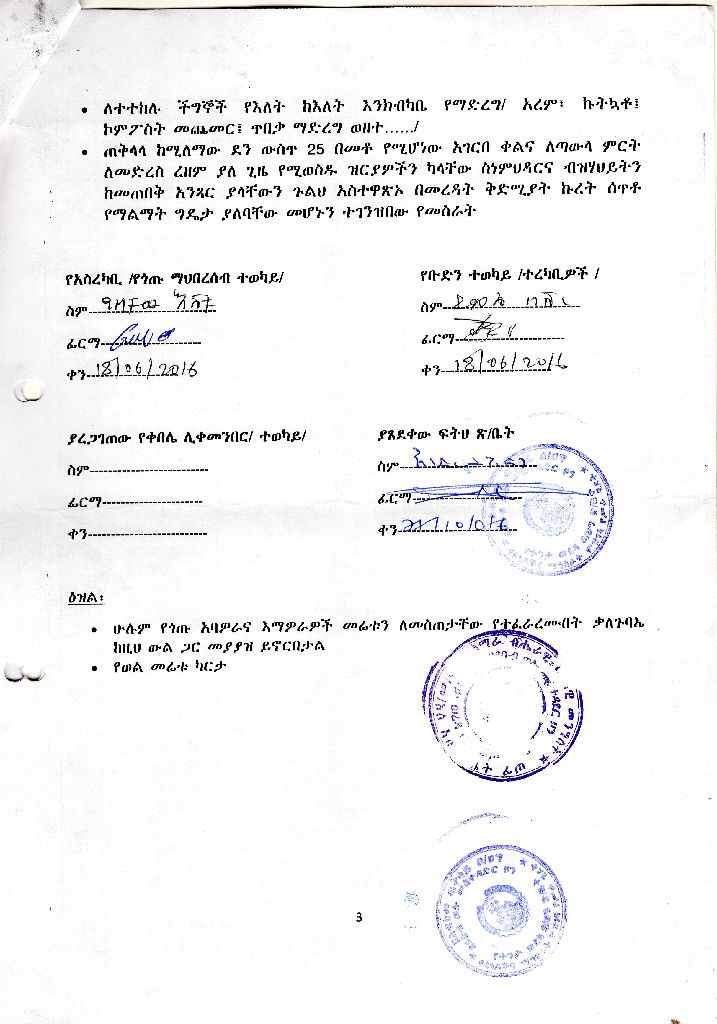 • ለተተከሉ ችግኞች የእለት ከእለት እንክብካቤ የማድረግ/ አረም፣ ኩትኳቶ፤
ኮምፖስት መጨመር፤ ጥበቃ ማድረግ ወዘተ....../
• ጠቅላላ ከሚለማው ደን ውስጥ 25 በመቶ የሚሆነው አገርበ ቀልና ለጣውላ ምርት
ለመድረስ ረዘም ያለ ጊዜ የሚወስዱ ዝርያዎችን ካላቸው ስነምህዳርና ብዝሃህይትን
ከመጠበቅ አንጻር ያላቸውን ጉልህ አስተዋጽኦ በመረዳት ቅድሚያት ኩረት ሰጥቶ
የማልማት ግዴታ ያለባቸው መሆኑን ተገንዝበው የመስራት
የአስረካቢ /የጎጡ ማህበረሰብ ተወካይ/
ስም
ፊርማ
ቀን 18/06/2016
የቡድን ተወካይ /ተረካቢዎች /
ስም
ፊርማ
ቀን 18/06/2016
ያረጋገጠው የቀበሌ ሊቀመንበር/ ተወካይ/
ስም
ፊርማ
ቀን
ያጸደቀው ፍትህ ጽ/ቤት
ስም
ፊርማ
ቀን
ዕዝል፡
• ሁሉም የጎጡ አባዎራና እማዎራዎች መሬቱን ለመስጠታቸው የተፈራረሙበት ቃለጉባኤ
ከዚህ ውል ጋር መያያዝ ይኖርበታል
• የወል መሬቱ ካርታ
3